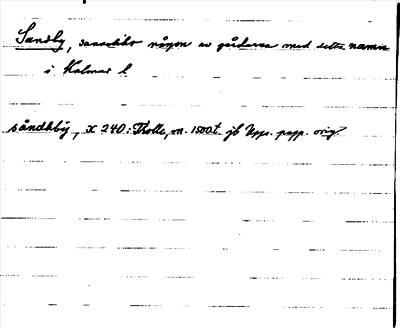 Sandby, sannolikt någon av gårdarna med detta namn
i Kalmar l
såndhby, X 240: Trolle, m. 1500t. jb Upps. papp. orig.